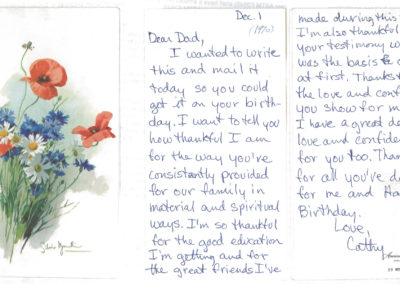 Dec. 1
(1970)
Dear Dad,
I wanted to write
this and mail it
today so you could
get it on your birth-
day. I want to tell you
how thankful I am
for the way you've
consistantly provided
for our family in
material and spiritual
ways. I'm so thankful
for the good education
I'm getting and for
the great friends I've
made during this
I'm also thankful
your testimony w
was the basis
at first. Thanks
the love and conf
you show for m
I have a great de
love and confide
for you too. Than
for all you've d
for me and Ha
Birthday.
Love,
Cathy